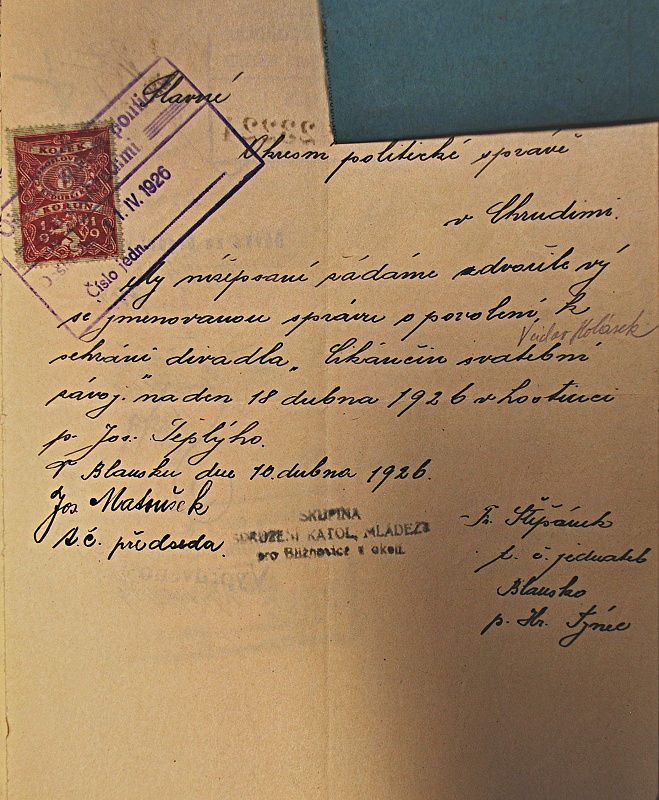 Slavné
Okresní politické správě
v Chrudimi.
My nížepsaní žádáme zdvořile vý
se jmenovanou správu o povolení k
Václav Kolásek
sehrání divadla „Cikánčin svatební
závoj." na den 18 dubna 1926 v hostinci
p. Jos. Teplýho.
V Blansku dne 10. dubna 1926.
Jos. Matoušek
t. č. předseda.
SKUPINA
SDRUŽENÍ KATOL. MLÁDEŽE
pro Bližňovice a okolí.
Fr. Štěpánek
t. č. jednatel
Blansko
p. Hr. Týnec
KOLEK
KORUNA
1919
politi
IV. 1926
Číslo jedn.